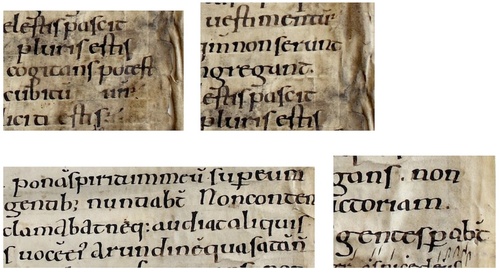 elestis pascit
pluris estis
cogitans potest
cubitū unū
liciti estis
uestimentū
non serunt
ngregant.
estis pascit
pluris estis
ponā spiritum meū super eum
gentib; nuntiabt̄ Non conten
clamabat neq; audiat aliquis
s uocē eī arundinē quasatā
gans . non
ictoriam.
gentes sperabt̄